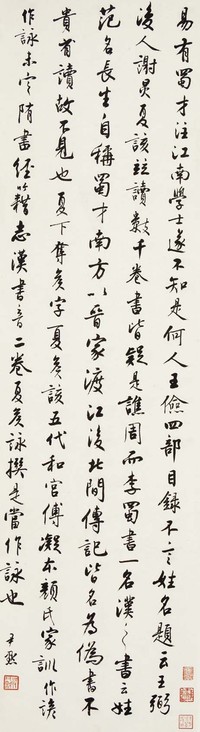 易有蜀才注江南學士遂不知是何人王儉四部目錄不言姓名題云王弼
後人謝炅夏該並讀數千卷書皆疑是譙周而李蜀書一名漢之書云姓
范名長生自稱蜀才南方以晉家渡江後北間傳記皆名為偽書不
貴省讀故不見也夏下奪矦字夏矦該五代和宮傅凝本顏氏家訓作諺
作詠未定隋書經籍志漢書音二卷夏矦詠撰是當作詠也 尹默